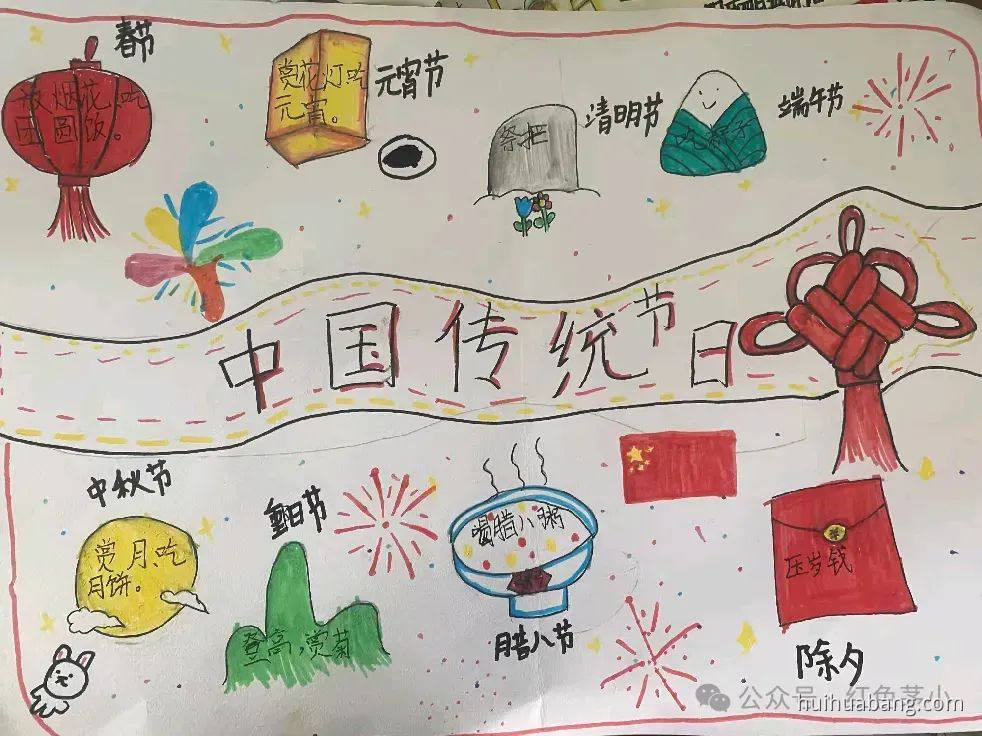 春节
放烟花、吃
团圆饭。
赏花灯、吃
元宵。
元宵节
祭把
清明节
吃粽子
端午节
中国传统节日
中秋节
赏月、吃
月饼。
重阳节
登高,赏菊
喝腊八粥
腊八节
压岁钱
除夕
公众号 · 红色茎小
huihuabang.com